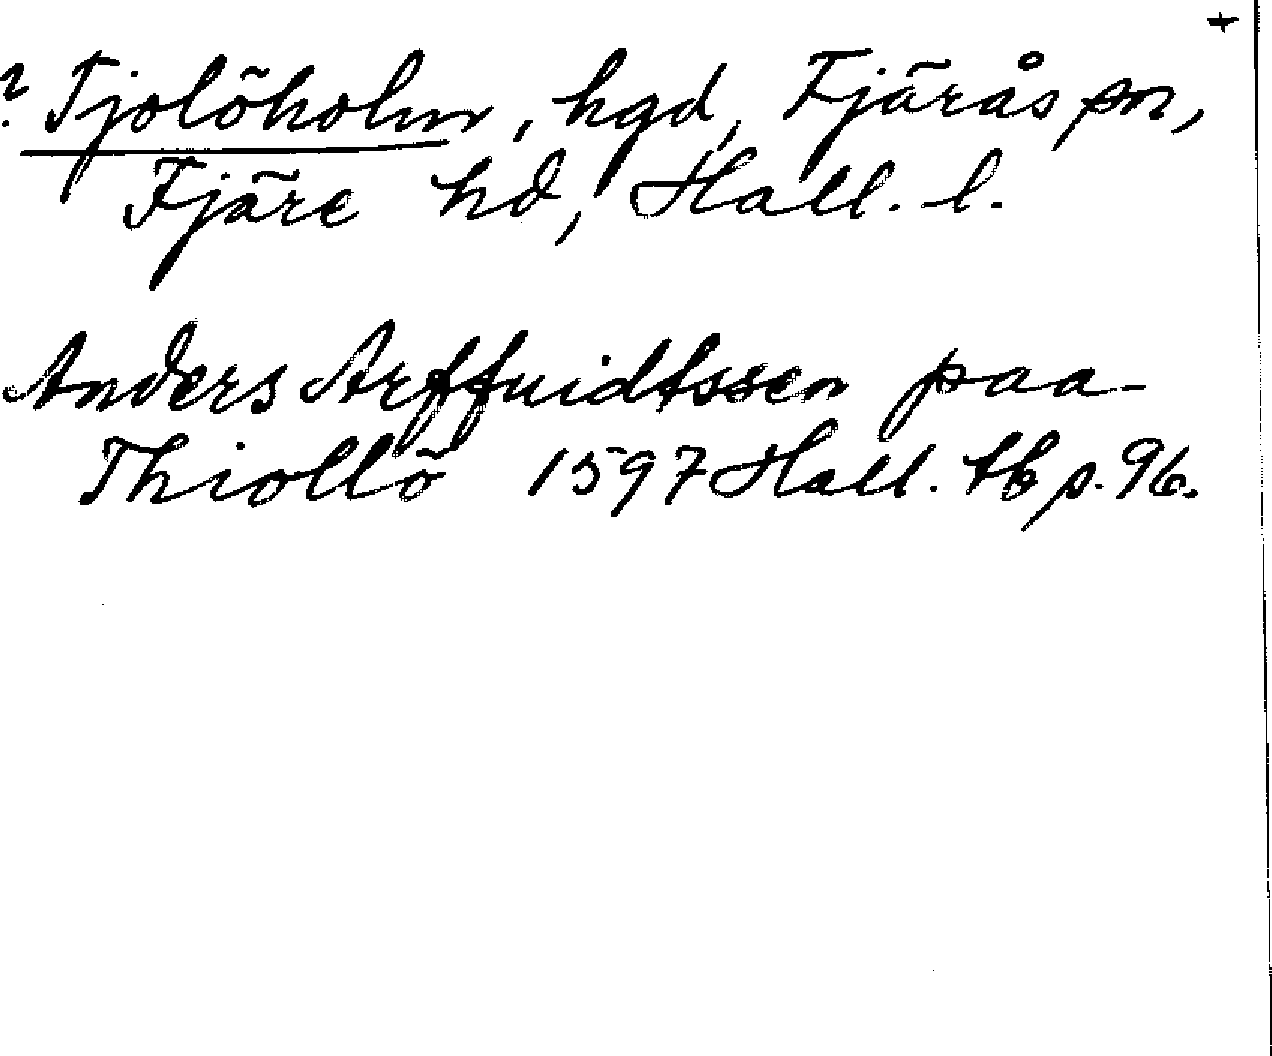 +
? Tjolöholm, hgd, Fjärås sn,
Fjäre hd, Hall. l.
Anders Arffuidtssen paa
Thiollö 1597 Hall. tb s. 96.